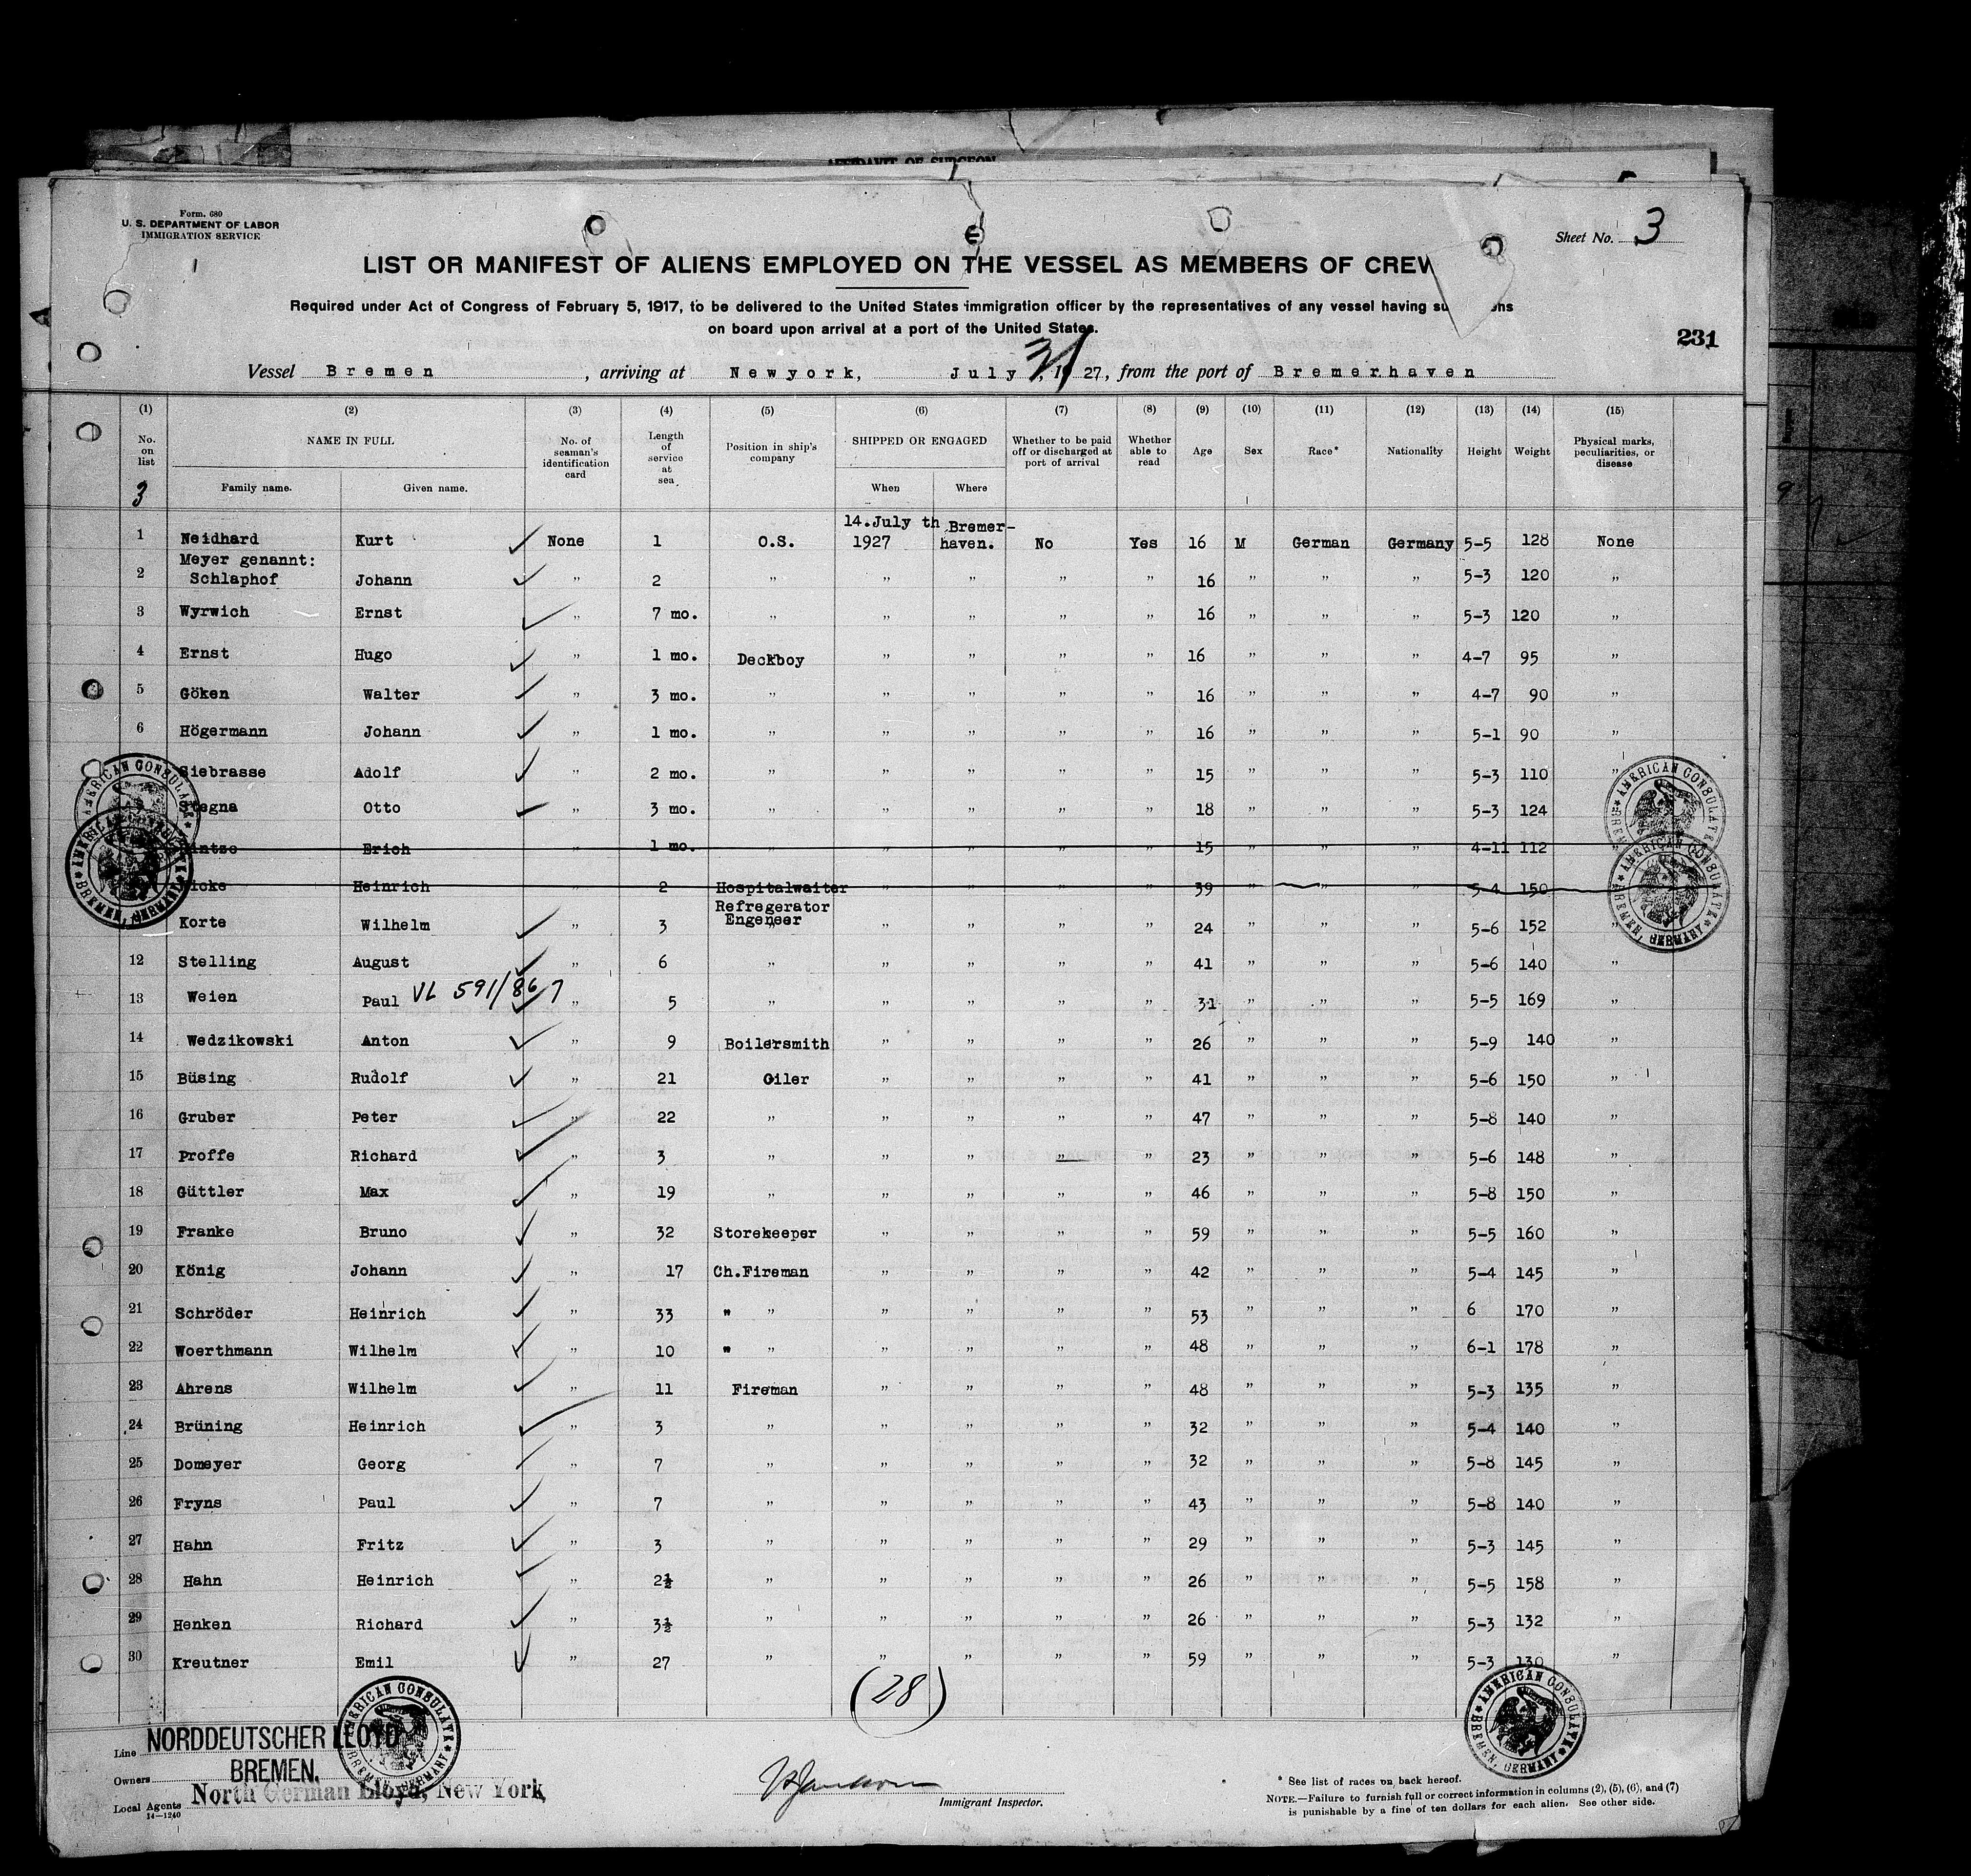 AFFIDAVIT OF SURGEON
Form. 680
U. S. DEPARTMENT OF LABOR
IMMIGRATION SERVICE
Sheet No. 3
LIST OR MANIFEST OF ALIENS EMPLOYED ON THE VESSEL AS MEMBERS OF CREW
Required under Act of Congress of February 5, 1917, to be delivered to the United States immigration officer by the representatives of any vessel having su ns
on board upon arrival at a port of the United States.
231
Vessel Bremen , arriving at Newyork, July 31, 1927, from the port of Bremerhaven
(1) (2) (3) (4) (5) (6) (7) (8) (9) (10) (11) (12) (13) (14) (15)
No. on list NAME IN FULL No. of seaman's identification card Length of service at sea Position in ship's company SHIPPED OR ENGAGED Whether to be paid off or discharged at port of arrival Whether able to read Age Sex Race* Nationality Height Weight Physical marks, peculiarities, or disease
3 Family name. Given name. When Where
1 Neidhard Kurt ✓ None 1 O.S. 14.July th 1927 Bremer-haven. No Yes 16 M German Germany 5-5 128 None
2 Meyer genannt: Schlaphof Johann ✓ " 2 " " " " " 16 " " " 5-3 120 "
3 Wyrwich Ernst ✓ " 7 mo. " " " " " 16 " " " 5-3 120 "
4 Ernst Hugo ✓ " 1 mo. Deckboy " " " " 16 " " " 4-7 95 "
5 Göken Walter ✓ " 3 mo. " " " " " 16 " " " 4-7 90 "
6 Högermann Johann ✓ " 1 mo. " " " " " 16 " " " 5-1 90 "
Siebrasse Adolf ✓ " 2 mo. " " " " " 15 " " " 5-3 110 "
Stegna Otto ✓ " 3 mo. " " " " " 18 " " " 5-3 124
Erich " 1 mo. " " " " " 15 " " " 4-11 112
Heinrich " 2 Hospitalwaiter " " " " 39 " " " 5-4 150
Korte Wilhelm ✓ " 3 Refregerator Engeneer " " " " 24 " " " 5-6 152 "
12 Stelling August ✓ " 6 " " " " " 41 " " " 5-6 140 "
13 Weien Paul VL 591/867 ✓ " 5 " " " " " 31 " " " 5-5 169 "
14 Wedzikowski Anton ✓ " 9 Boilersmith " " " " 26 " " " 5-9 140 "
15 Büsing Rudolf ✓ " 21 Oiler " " " " 41 " " " 5-6 150 "
16 Gruber Peter ✓ " 22 " " " " " 47 " " " 5-8 140 "
17 Proffe Richard ✓ " 3 " " " " " 23 " " " 5-6 148 "
18 Güttler Max ✓ " 19 " " " " " 46 " " " 5-8 150 "
19 Franke Bruno ✓ " 32 Storekeeper " " " " 59 " " " 5-5 160 "
20 König Johann ✓ " 17 Ch.Fireman " " " " 42 " " " 5-4 145 "
21 Schröder Heinrich ✓ " 33 " " " " " " 53 " " " 6 170 "
22 Woerthmann Wilhelm ✓ " 10 " " " " " " 48 " " " 6-1 178 "
23 Ahrens Wilhelm ✓ " 11 Fireman " " " " 48 " " " 5-3 135 "
24 Brüning Heinrich ✓ " 3 " " " " " 32 " " " 5-4 140 "
25 Domeyer Georg ✓ " 7 " " " " " 32 " " " 5-8 145 "
26 Fryns Paul ✓ " 7 " " " " " 43 " " " 5-8 140 "
27 Hahn Fritz ✓ " 3 " " " " " 29 " " " 5-3 145 "
28 Hahn Heinrich ✓ " 2½ " " " " " 26 " " " 5-5 158 "
29 Henken Richard ✓ " 3½ " " " " " 26 " " " 5-3 132 "
30 Kreutner Emil ✓ " 27 " " " " " 59 " " " 5-3 130 "
(28)
AMERICAN CONSULATE BREMEN, GERMANY
AMERICAN CONSULATE BREMEN, GERMANY
AMERICAN CONSULATE BREMEN, GERMANY
AMERICAN CONSULATE BREMEN, GERMANY
AMERICAN CONSULATE BREMEN, GERMANY
AMERICAN CONSULATE BREMEN, GERMANY
Line NORDDEUTSCHER LLOYD
Owners BREMEN.
Local Agents North German Lloyd, New York
14—1240
Immigrant Inspector.
* See list of races on back hereof.
NOTE.—Failure to furnish full or correct information in columns (2), (5), (6), and (7)
is punishable by a fine of ten dollars for each alien. See other side.